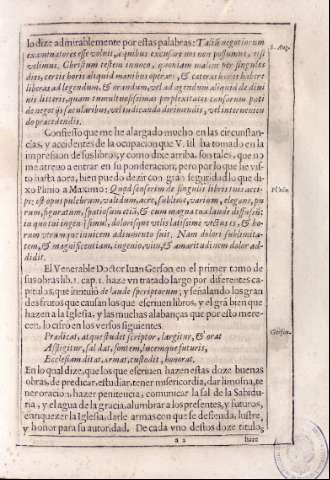 lo dize admirablemente por estas palabras: Talium negotiorum
examinatores esse voluit, a quibus excusare nos non possumus, etsi
velimus. Christum testem invoco, quoniam malim per singulos
dies, certis horis aliquid manibus operari, & cæteras horas habere
liberas ad legendum, & orandum, vel ad agendum aliquid de divi
nis litteris, quam tumultuosissimas perplexitates causarum pati
de negotijs sæcularibus, vel iudicando dirimendis, vel interveniendo
præcidendis.
S. Aug.
Confiesso que me he alargado mucho en las circunstan
cias, y accidentes de la ocupacion que V. Ill. ha tomado en la
impression de sus libros; y como dixe arriba, son tales, que no
me atrevo a entrar en su ponderacion; pero por lo que he vis
to hasta aora, bien puedo dezir con gran seguridad lo que di-
xo Plinio a Maximo: Quod senserim de singulis libris tuis acci
pe; est opus pulchrum, validum, acre, sublime, varium, elegans, pu
rum, figuratum, spatiosum etiam, & cum magna tua laude diffusum:
in quo tu ingenij simul, dolorisque velis latissime vectus es, & ho
rum utrumque invicem adiumento fuit. Nam dolori sublimita-
tem, & magnificentiam, ingenio, vim, & amaritudinem dolor ad-
didit.
Plinio
El Venerable Doctor Iuan Gerson en el primer tomo de
sus obras lib. 1. cap. 1. haze vn tratado largo por diferentes ca
pitulos, que intituló de laude scriptorum, y señalando los gran
des frutos que causan los que escriven libros, y el grã bien que
hazen a la Iglesia, y las muchas alabanças que por esto mere-
cen, lo cifró en los versos siguientes.
Prædicat, atque studet scriptor, largitur, & orat
Affligitur, sal dat, fontem, lucemque futuris,
Ecclesiam ditat, armat, custodit, honorat.
Gerson.
En lo qual dize, que los que escriven hazen estas doze buenas
obras, de predicar, estudiar, tener misericordia, dar limosna, te
ner oracion, hazer penitencia, comunicar la sal de la Sabidu
ria, y el agua de la gracia, alumbrar a los presentes, y futuros,
enriquezer la Iglesia, darle armas con que se defienda, lustre,
y honor para su autoridad. De cada vno destos doze titulos
a 2
haze